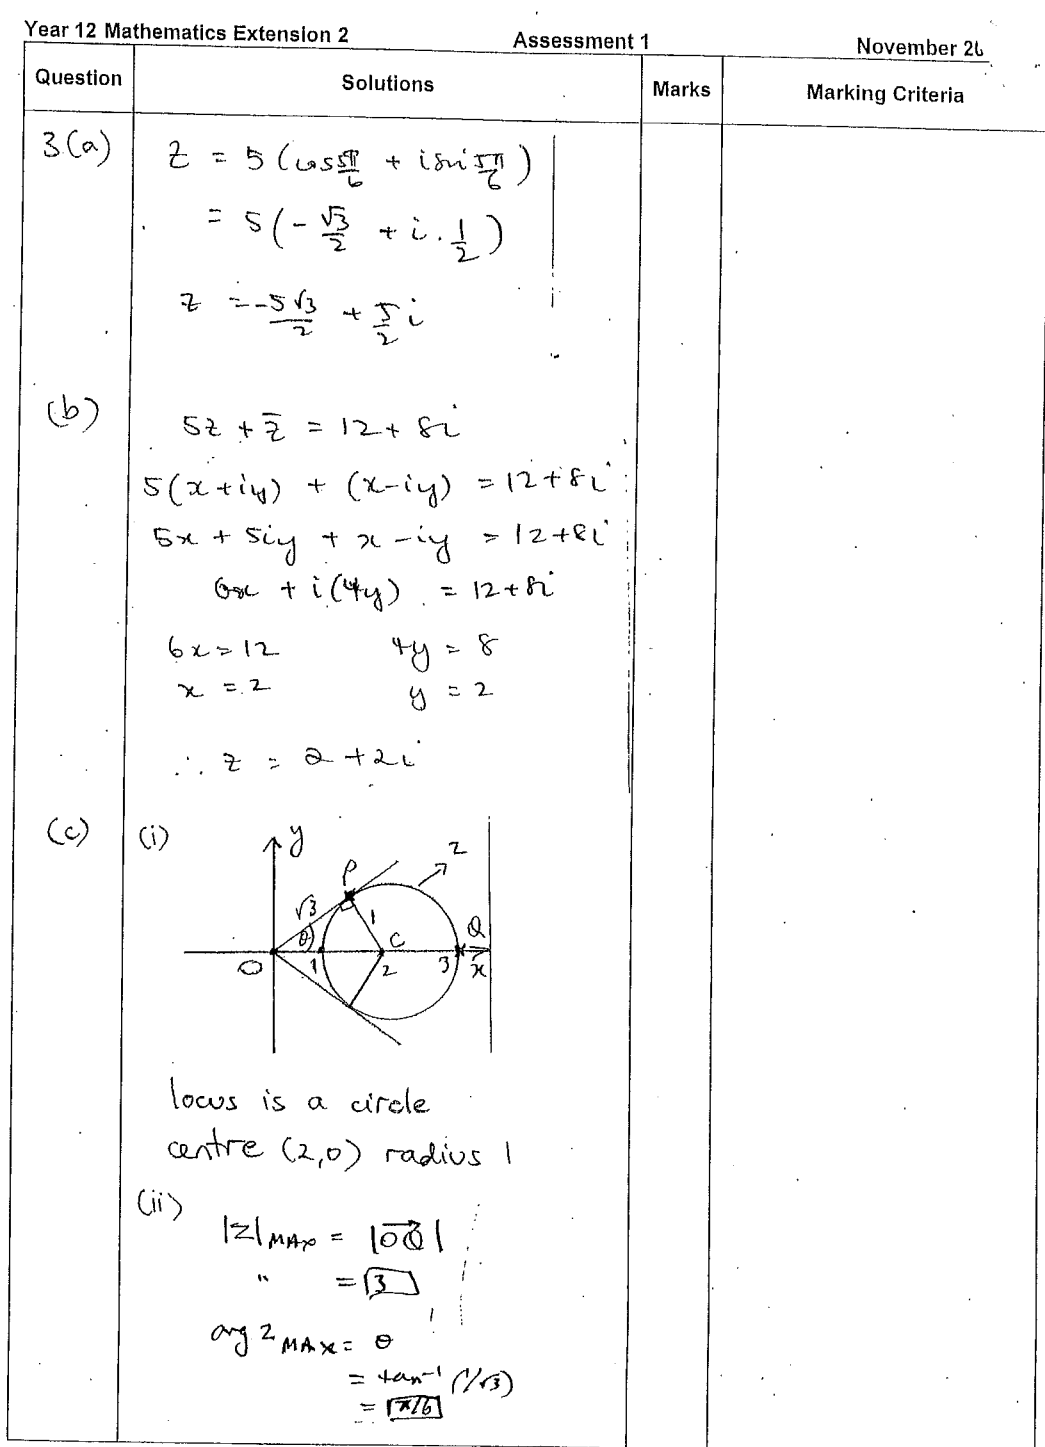 Year 12 Mathematics Extension 2 Assessment 1 November 20
Question Solutions Marks Marking Criteria
3(a) z = 5(cos 5π/6 + i sin 5π/6)
= 5(-√3/2 + i. 1/2)
z = -5√3/2 + 5/2 i
(b) 5z + z̄ = 12 + 8i
5(x+iy) + (x-iy) = 12+8i
5x + 5iy + x - iy = 12+8i
6x + i(4y) = 12+8i
6x = 12 4y = 8
x = 2 y = 2
∴ z = 2 + 2i
(c) (i) y
z
P
√3 1
θ C Q
O 1 2 3 x
locus is a circle
centre (2,0) radius 1
(ii)
|z| MAX = |OQ⃗|
" = 3
arg z MAX = θ
= tan⁻¹ (1/√3)
= π/6